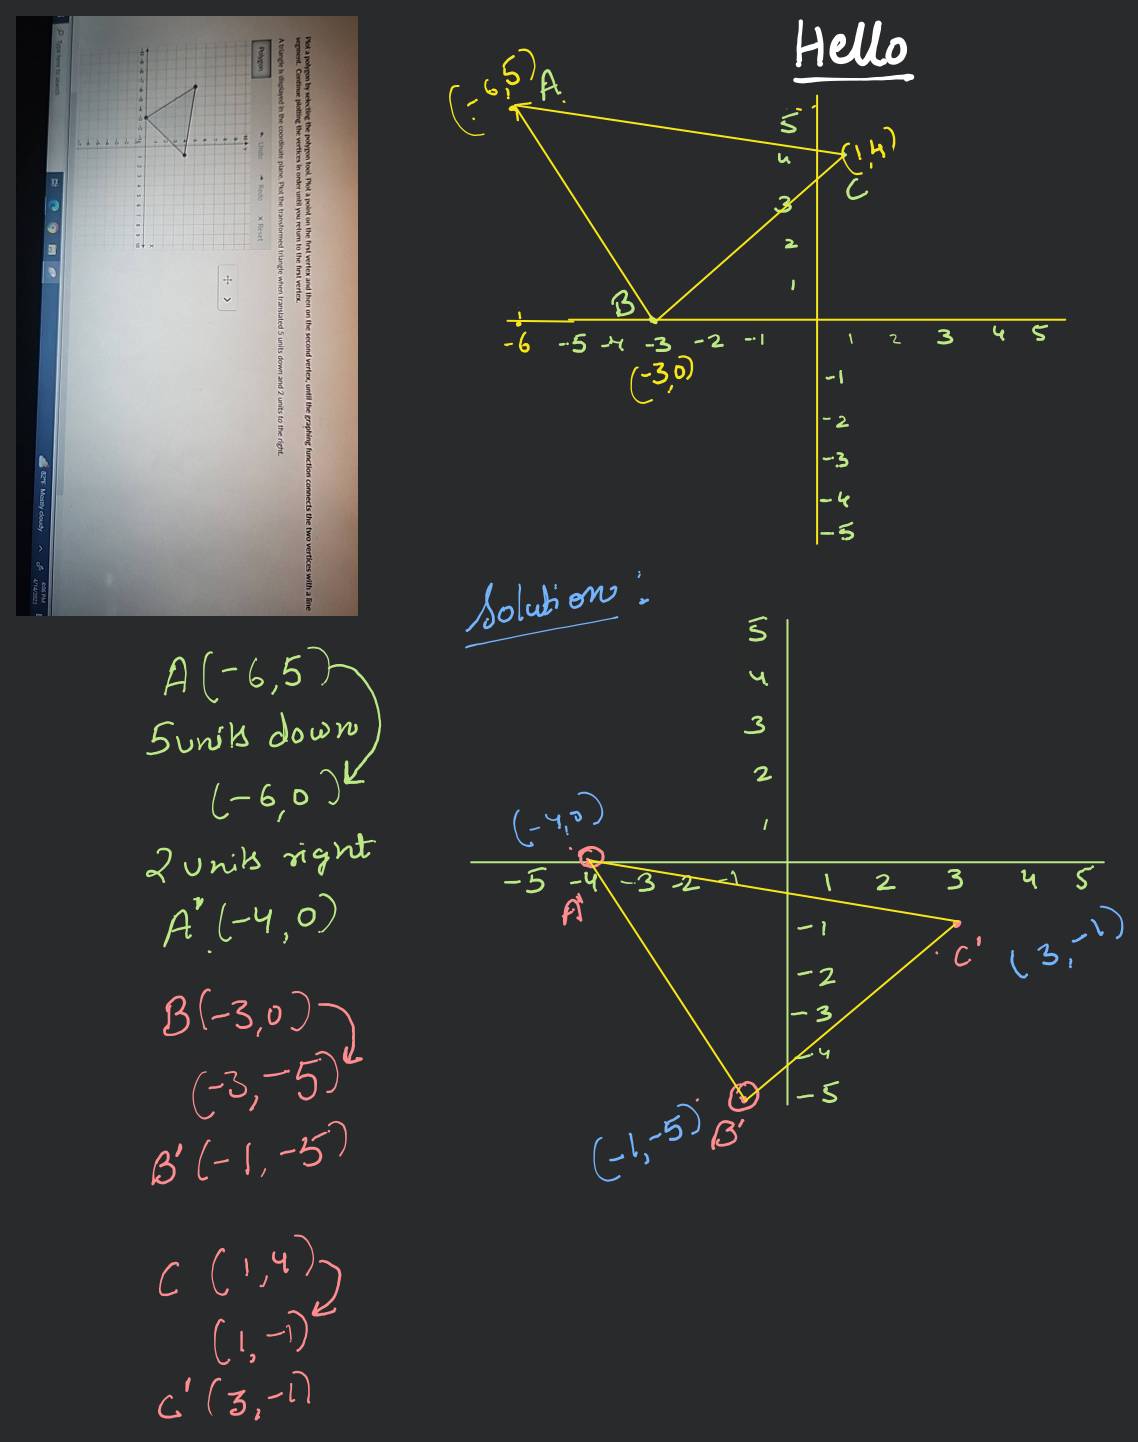 Hello
Plot a polygon by selecting the polygon tool. Plot a point on the first vertex and then on the second vertex, until the graphing function connects the two vertices with a line
segment. Continue plotting the vertices in order until you return to the first vertex.
A triangle is displayed in the coordinate plane. Plot the transformed triangle when translated 5 units down and 2 units to the right.
Polygon
Undo
Redo
× Reset
Type here to search
82°F Mostly cloudy
4:06 PM
(-6,5)
A
5
4
(1,4)
C
3
2
1
B
-6 -5 -4 -3 -2 -1 1 2 3 4 5
(-3,0)
-1
-2
-3
-4
-5
Solution:
A(-6,5)
5 units down
(-6,0)
2 units right
A'(-4,0)
B(-3,0)
(-3,-5)
B'(-1,-5)
C (1,4)
(1,-1)
C'(3,-1)
5
4
3
2
1
(-4,0)
-5 -4 -3 -2 -1 1 2 3 4 5
A'
-1
C' (3,-1)
-2
-3
-4
-5
(-1,-5) B'